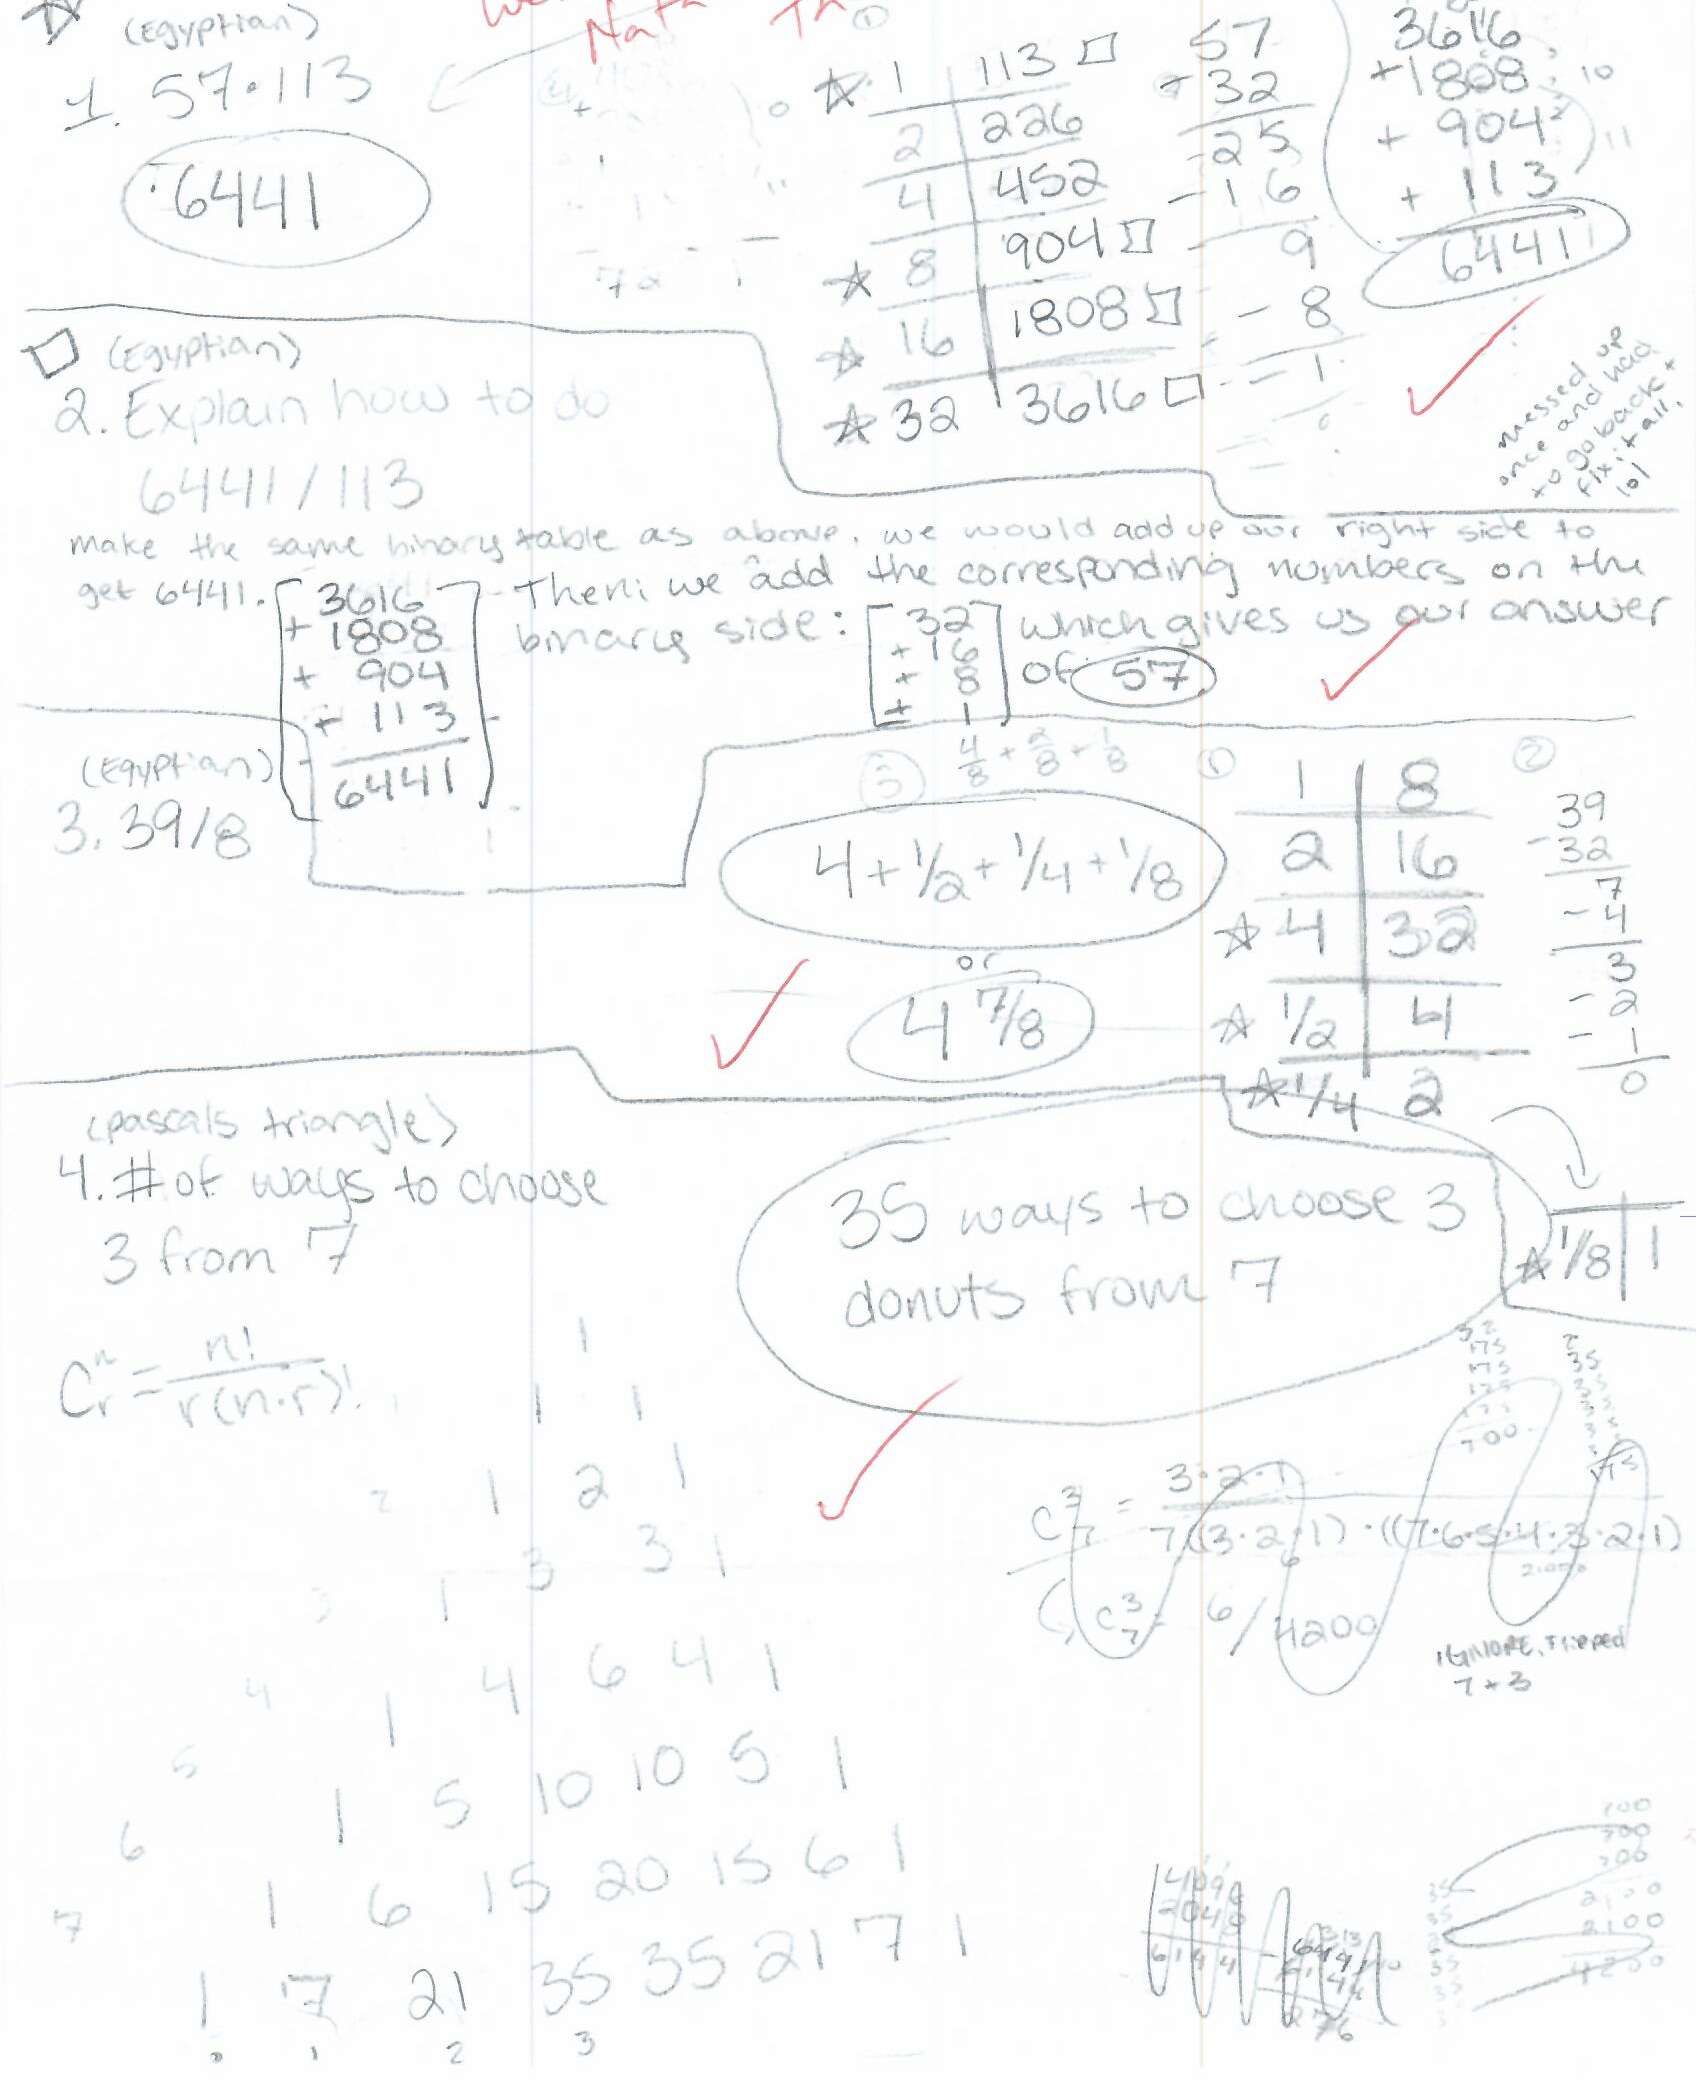 (Egyptian)
1. 57·113
6441
①
1 113
2 226
4 452
8 904
16 1808
32 3616
57
-32
25
-16
9
-8
1
3616
+1808
+ 904
+ 113
6441
messed up
once and had
to go back +
fix it all.
lol
(Egyptian)
2. Explain how to do
6441/113
make the same binary table as above, we would add up our right side to
get 6441.
3616
+ 1808
+ 904
+ 113
6441
Then we add the corresponding numbers on the
binary side:
32
+ 16
+ 8
+ 1
which gives us our answer
of 57
(Egyptian)
3. 39/8
③ 4/8 + 2/8 + 1/8
4 + 1/2 + 1/4 + 1/8
or
4 7/8
①
1 8
2 16
4 32
1/2 4
1/4 2
1/8 1
②
39
-32
7
-4
3
-2
-1
0
(pascals triangle)
4. # of ways to choose
3 from 7
35 ways to choose 3
donuts from 7
C^n_r = n!/r(n-r)!
1
1 1
2 1 2 1
3 1 3 3 1
4 1 4 6 4 1
5 1 5 10 10 5 1
6 1 6 15 20 15 6 1
7 1 7 21 35 35 21 7 1
0 1 2 3
C^3_7 = 3·2·1
7((3·2·1)·((7·6·5·4·3·2·1)
C^3_7 = 6/4200
IGNORE, Flipped
7 + 3
700
700
700
2100
2100
4200